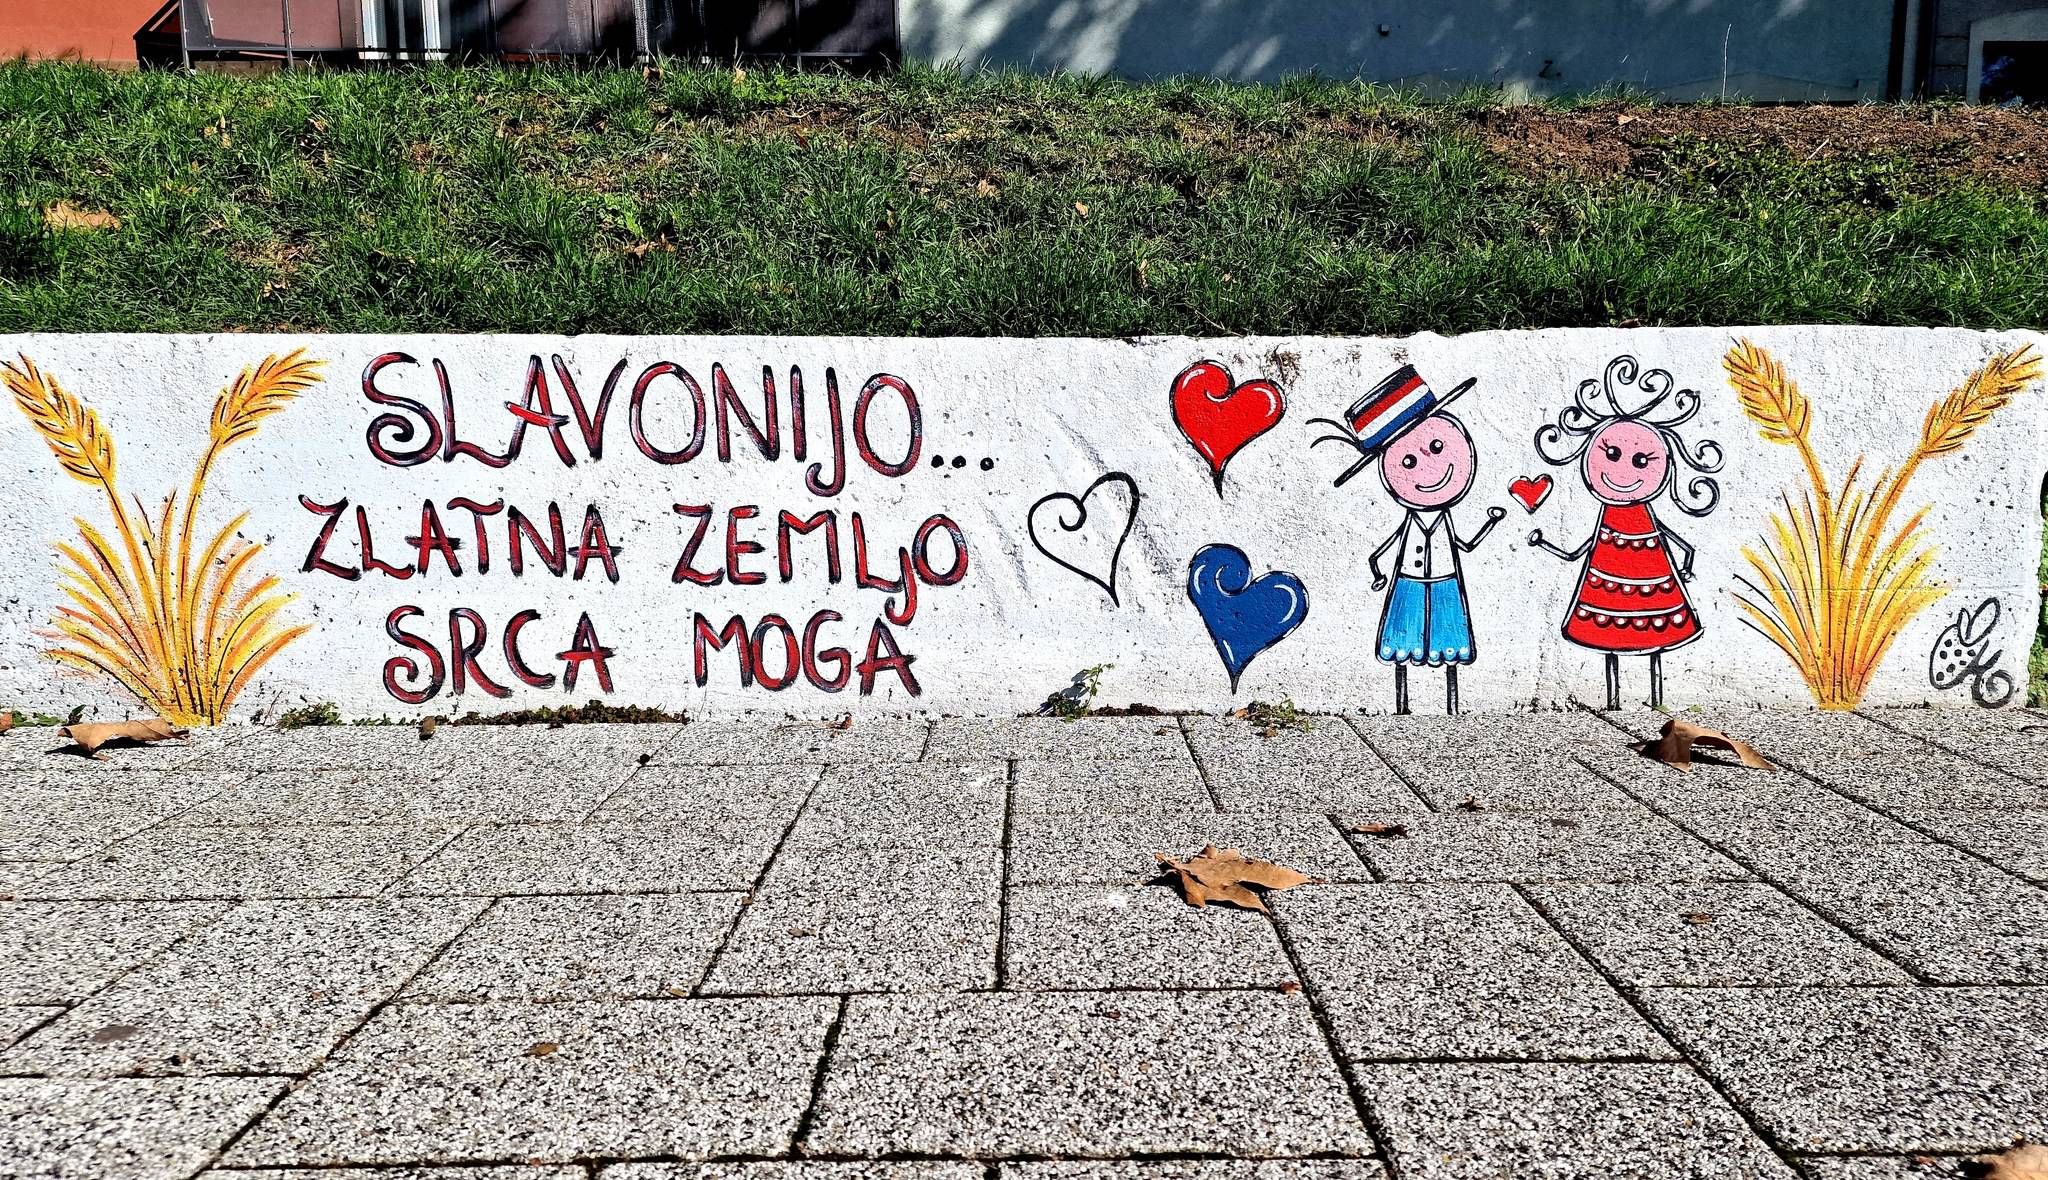 SLAVONIJO...
ZLATNA ZEMLJO
SRCA MOGA